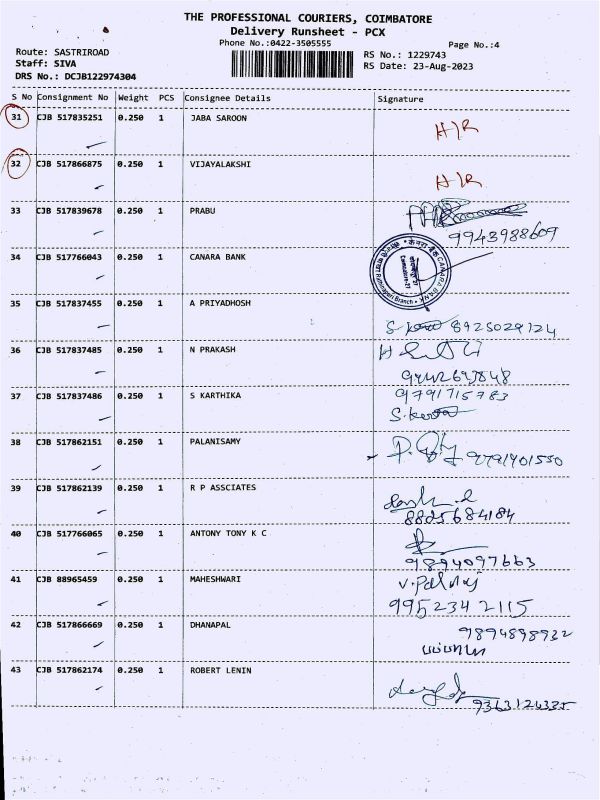 THE PROFESSIONAL COURIERS, COIMBATORE
Delivery Runsheet - PCX
Phone No.:0422-3505555
Page No.:4
Route: SASTRIROAD
Staff: SIVA
DRS No.: DCJB122974304
RS No.: 1229743
RS Date: 23-Aug-2023
S No Consignment No Weight PCS Consignee Details Signature
31 CJB 517835251 0.250 1 JABA SAROON H/R
32 CJB 517866875 0.250 1 VIJAYALAKSHI H/R
33 CJB 517839678 0.250 1 PRABU
9943988609
34 CJB 517766043 0.250 1 CANARA BANK
CANARA BANK
35 CJB 517837455 0.250 1 A PRIYADHOSH
8925029124
36 CJB 517837485 0.250 1 N PRAKASH
37 CJB 517837486 0.250 1 S KARTHIKA 9791715783
38 CJB 517862151 0.250 1 PALANISAMY
9791401550
39 CJB 517862139 0.250 1 R P ASSCIATES
8805684184
40 CJB 517766065 0.250 1 ANTONY TONY K C
9894097663
41 CJB 88965459 0.250 1 MAHESHWARI
9952342115
42 CJB 517866669 0.250 1 DHANAPAL 9894898932
43 CJB 517862174 0.250 1 ROBERT LENIN
9363124325